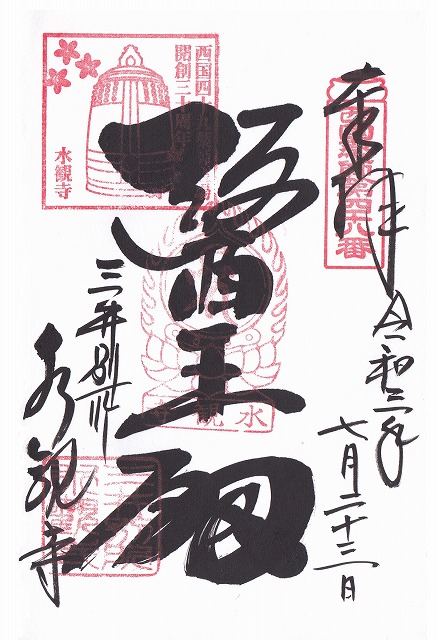 奉拝
令和三年
七月二十三日
西国薬師第四十八番
醫王殿
三井別所
水観寺
水観寺
西国四十九薬師霊場
開創三十周年
水観寺